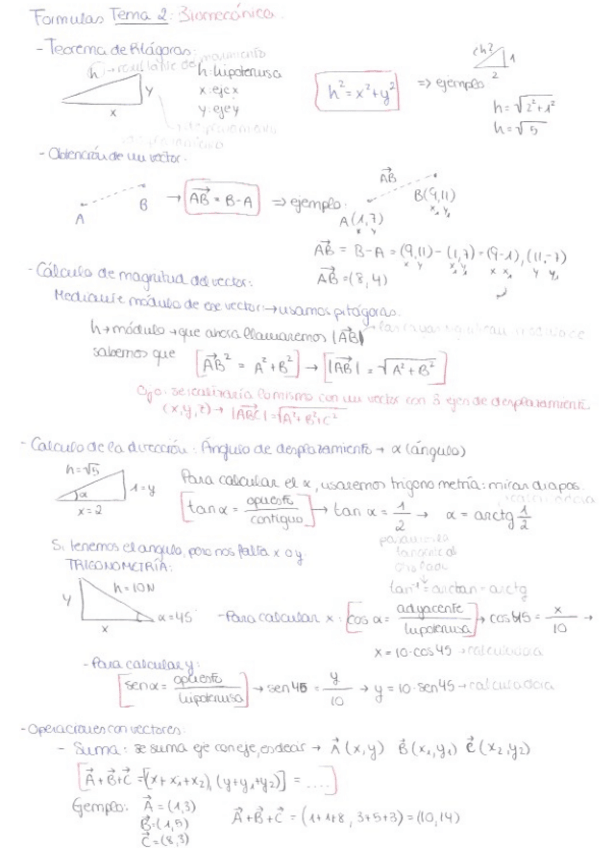 Formulas Tema 2: Biomecánica.
- Teorema de Pitágoras:
h → resultante del movimiento
h: hipotenusa
x: eje x
y: eje y
y
x
h² = x² + y²
⇒ ejemplo
¿h?
1
2
h = √2² + 1²
h = √5
- Obtención de un vector.
A B → AB = B - A ⇒ ejemplo:
AB
A (1,7)
B (9,11)
AB = B - A = (9,11) - (1,7) = (9-1), (11-7)
AB = (8, 4)
- Cálculo de magnitud del vector:
Mediante módulo de ese vector: → usamos pitágoras.
h → módulo → que ahora llamaremos |AB|
sabemos que [AB² = A² + B²] → |AB| = √A² + B²
Ojo: se realizaría lo mismo con un vector con 3 ejes de desplazamiento
(x, y, z) → |ABC| = √A² + B² + C²
- Calculo de la dirección: Ángulo de desplazamiento → α (ángulo)
h = √5
1 = y
α
x = 2
Para calcular el α, usaremos trigonometría: mirar diapos.
[tan α = opuesto / contiguo] → tan α = 1/2 → α = arctg 1/2
tan⁻¹ = arctan = arctg
Si tenemos el angulo, pero nos falta x o y.
TRIGONOMETRÍA:
h = 10N
y
x
α = 45
- Para calcular x: [cos α = adyacente / hipotenusa] → cos 45 = x / 10 →
x = 10·cos 45 → calculadora
- Para calcular y:
[sen α = opuesto / hipotenusa] → sen 45 = y / 10 → y = 10·sen 45 → calculadora
- Operaciones con vectores:
- Suma: se suma eje con eje, es decir → A (x, y) B (x₁, y₁) C (x₂, y₂)
[A + B + C = [(x + x₁ + x₂), (y + y₁ + y₂)] = ....]
Ejemplo: A = (1,3)
B = (1,5)
C = (8,3)
A + B + C = (1+1+8, 3+5+3) = (10,14)